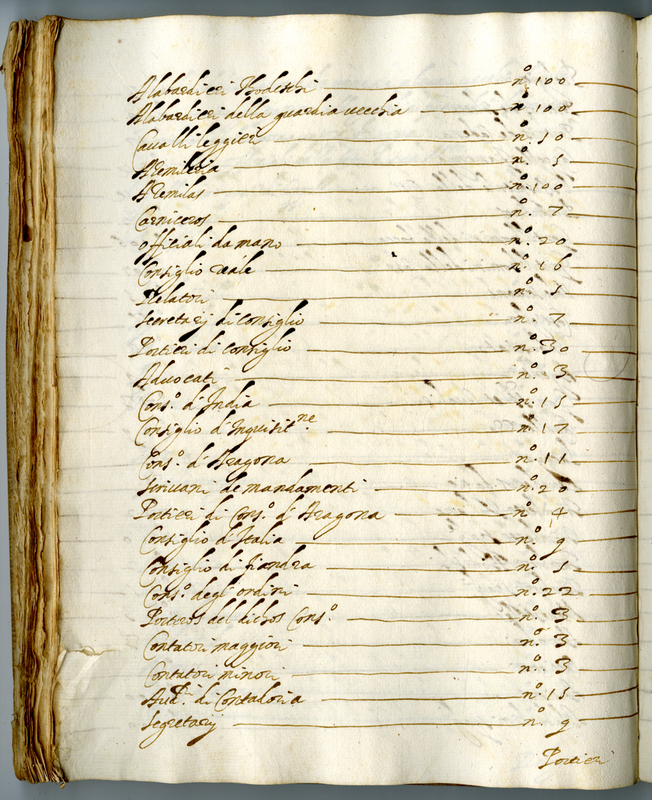 Alabardieri Thodeschi n.º 100
Alabardieri della guardia vecchia n.º 100
Cavalli leggieri n.º 50
Azemileria n.º 5
Azemilas n.º 100
Carniceros n.º 7
Officiali da mano n.º 20
Consiglio reale n.º 16
Relatori n.º 5
Secretarij di Consiglio n.º 7
Portieri di Consiglio n.º 30
Advocati n.º 3
Cons.º d'India n.º 15
Consiglio d'Inquisit.ne n.º 17
Cons.º d'Aragona n.º 11
Scrivani de mandamenti n.º 20
Portieri di Cons.º d'Aragona n.º 4
Consiglio d'Italia n.º 9
Consiglio di fiandra n.º 5
Cons.º degl'ordini n.º 22
Porteros del dichos Cons.º n.º 3
Contatori maggiori n.º 3
Contatori minori n.º 3
di Contadoria n.º 15
Segretarij n.º 9
Portieri